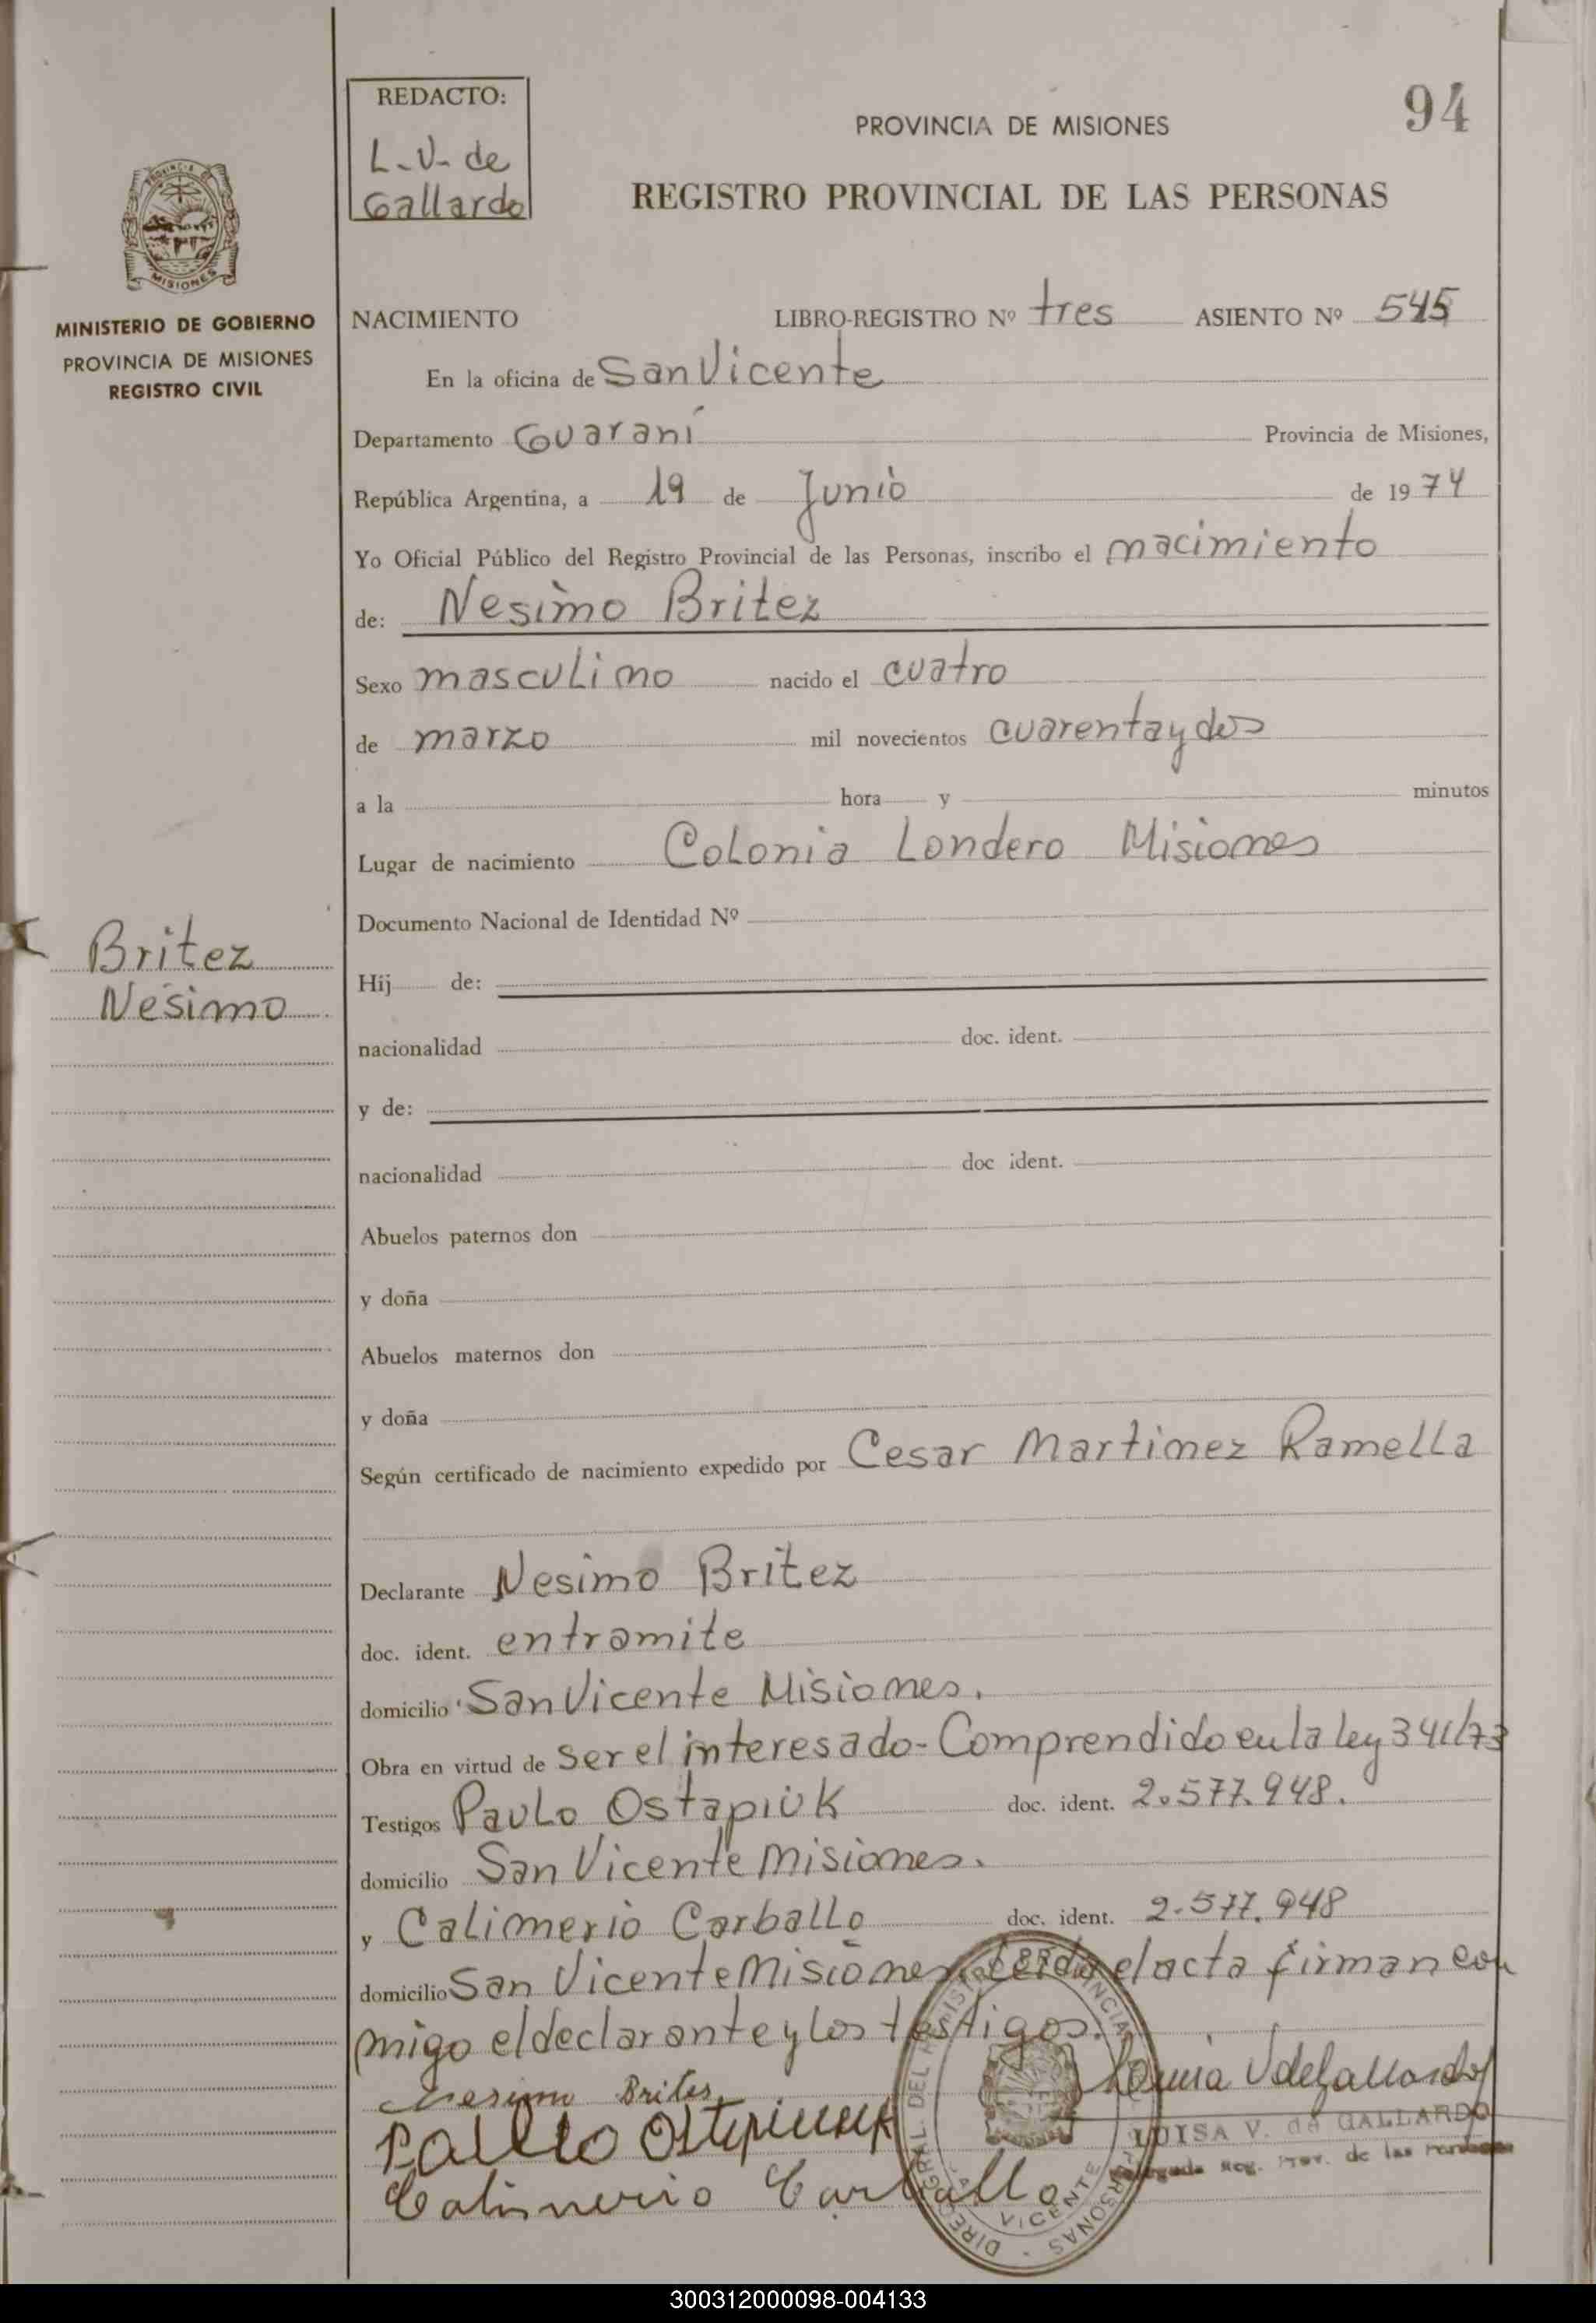 94
REDACTO:
L-V- de
Gallardo
PROVINCIA DE MISIONES
REGISTRO PROVINCIAL DE LAS PERSONAS
MISIONES
MINISTERIO DE GOBIERNO
PROVINCIA DE MISIONES
REGISTRO CIVIL
NACIMIENTO LIBRO-REGISTRO Nº tres ASIENTO Nº 545
En la oficina de San Vicente
Departamento Guaraní Provincia de Misiones,
República Argentina, a 19 de Junio de 1974
Yo Oficial Público del Registro Provincial de las Personas, inscribo el nacimiento
de: Nesimo Britez
Sexo masculino nacido el cuatro
de marzo mil novecientos cuarenta y dos
a la hora y minutos
Lugar de nacimiento Colonia Londero Misiones
Documento Nacional de Identidad Nº
Britez
Nesimo
Hij de:
nacionalidad doc. ident.
y de:
nacionalidad doc ident.
Abuelos paternos don
y doña
Abuelos maternos don
y doña
Según certificado de nacimiento expedido por Cesar Martinez Ramella
Declarante Nesimo Britez
doc. ident. entramite
domicilio San Vicente Misiones.
Obra en virtud de ser el interesado- Comprendido en la ley 341/73
Testigos Paulo Ostapiuk doc. ident. 2.577.948.
domicilio San Vicente Misiones.
y Calimerio Carballo doc. ident. 2.577.948
domicilio San Vicente Misiones Leída el acta firman con
migo el declarante y los testigos.
Nesimo Brites
Paulo Ostapiuk
Calimerio Carballo
Luisa V de Gallardo
LUISA V. de GALLARDO
Delegada Reg. Prov. de las Personas
VICENTE
300312000098-004133